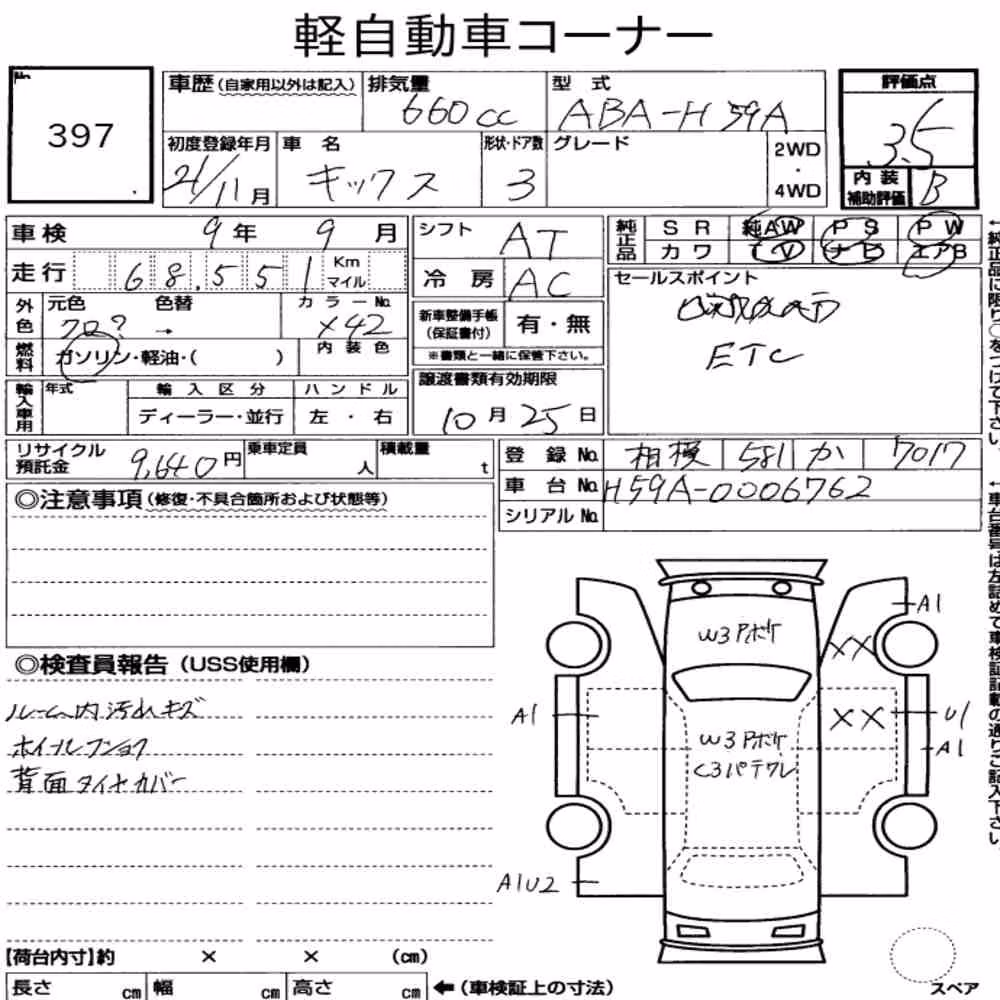 軽自動車コーナー
No
397
車歴(自家用以外は記入)
排気量
660cc
型式
ABA-H59A
評価点
3.5
初度登録年月
21/11月
車名
キックス
形状・ドア数
3
グレード
2WD
・
4WD
内装
補助評価
B
車検 9年 9月
シフト AT
純正品
SR 純AW PS PW
カワ TV ナビ エアB
走行 68,551 Km
マイル
冷房 AC
セールスポイント
ETC
外色
元色
クロ?
色替
→
カラーNo.
X42
新車整備手帳
(保証書付)
有・無
※書類と一緒に保管下さい。
燃料
ガソリン・軽油・( )
内装色
譲渡書類有効期限
10月25日
輸入車用
年式
輸入区分
ディーラー・並行
ハンドル
左・右
リサイクル
預託金
9,640円
乗車定員
人
積載量
t
登録No. 相模 581 か 7017
車台No. H59A-0006762
シリアルNo.
◎注意事項(修復・不具合箇所および状態等)
◎検査員報告(USS使用欄)
ルーム内汚れキズ
ホイールフショク
背面タイヤカバー
A1
W3 Pボケ
XX
A1
XX
U1
W3 Pボケ
C3パテワレ
A1
A1U2
【荷台内寸】約 × × (cm)
長さ cm 幅 cm 高さ cm ←(車検証上の寸法)
スペア
←純正品に限り○をつけて下さい。
←車台番号は左詰めで車検証記載の通りご記入下さい。